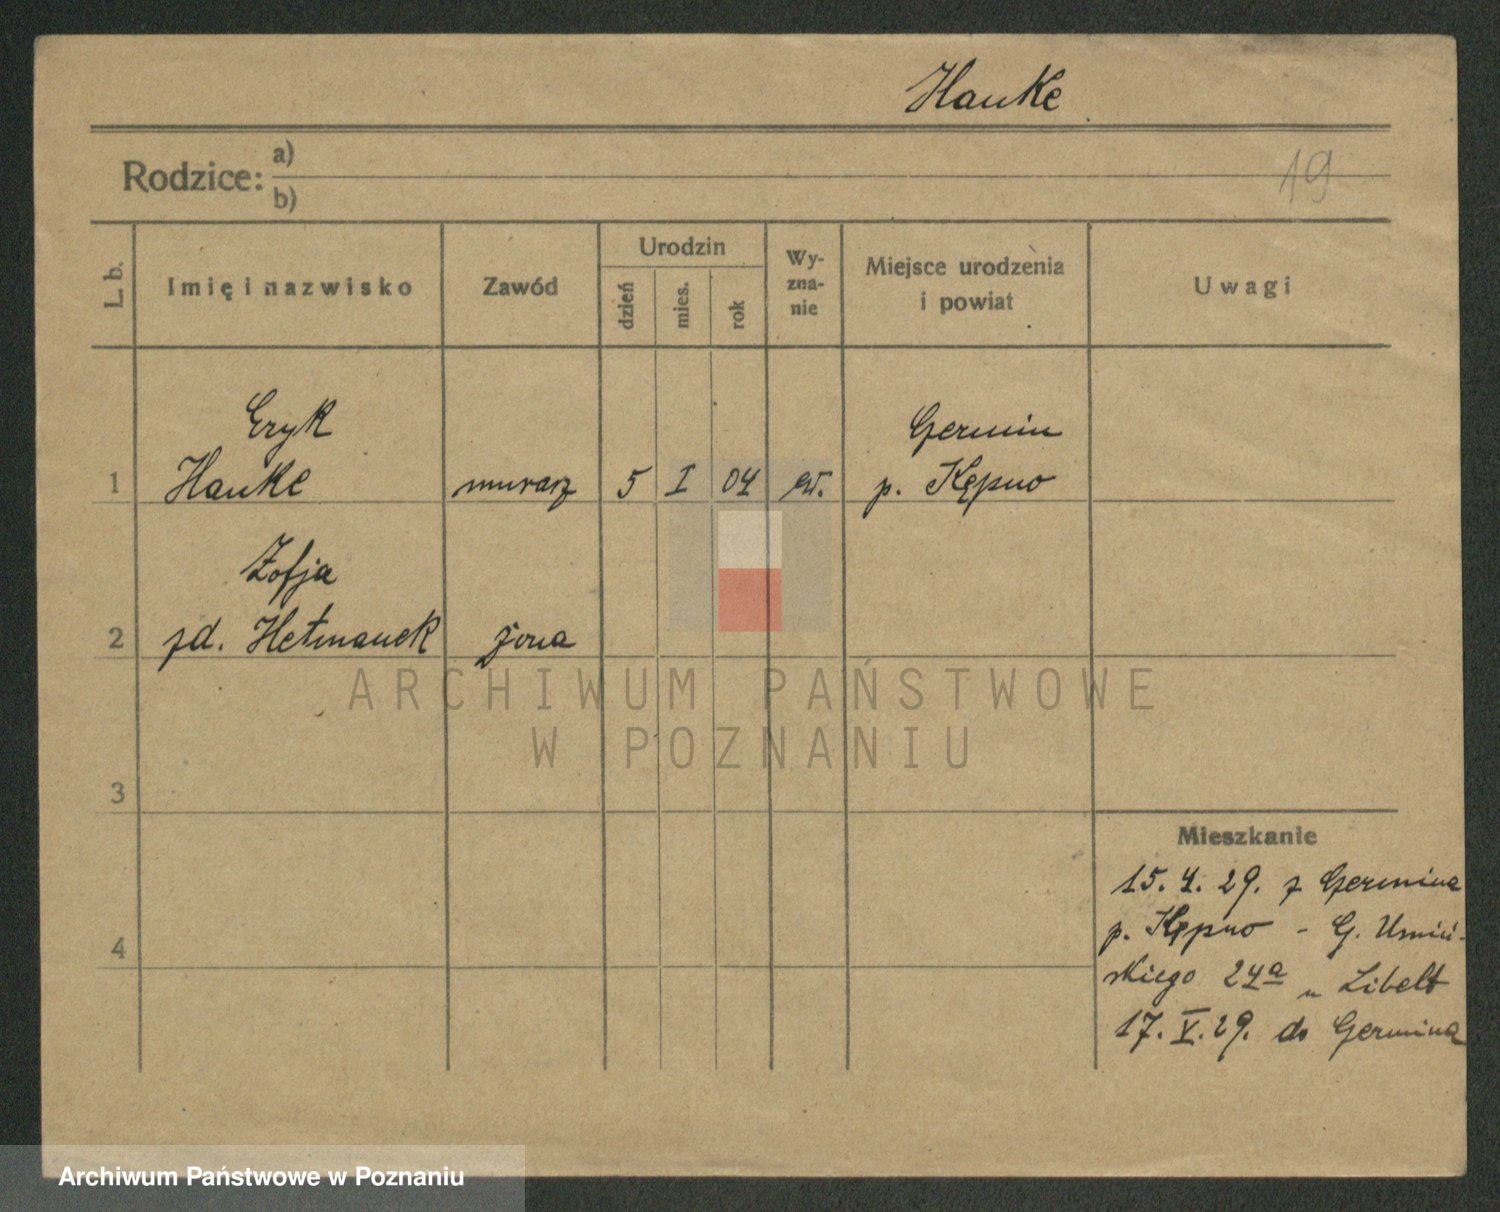 Hanke
Rodzice: a)
b)
19
L. b.
Imię i nazwisko
Zawód
Urodzin
dzień
mies.
rok
Wy-
zna-
nie
Miejsce urodzenia
i powiat
Uwagi
Eryk
Germin
1 Hanke murarz 5 I 04 ew. p. Kępno
Zofja
2 zd. Hetmanek żona
ARCHIWUM PAŃSTWOWE
W POZNANIU
3
Mieszkanie
15. 4. 29. z Germina
p. Kępno - G. Umiń-
4
skiego 24a u Libelt
17. V. 29. do Germina
Archiwum Państwowe w Poznaniu